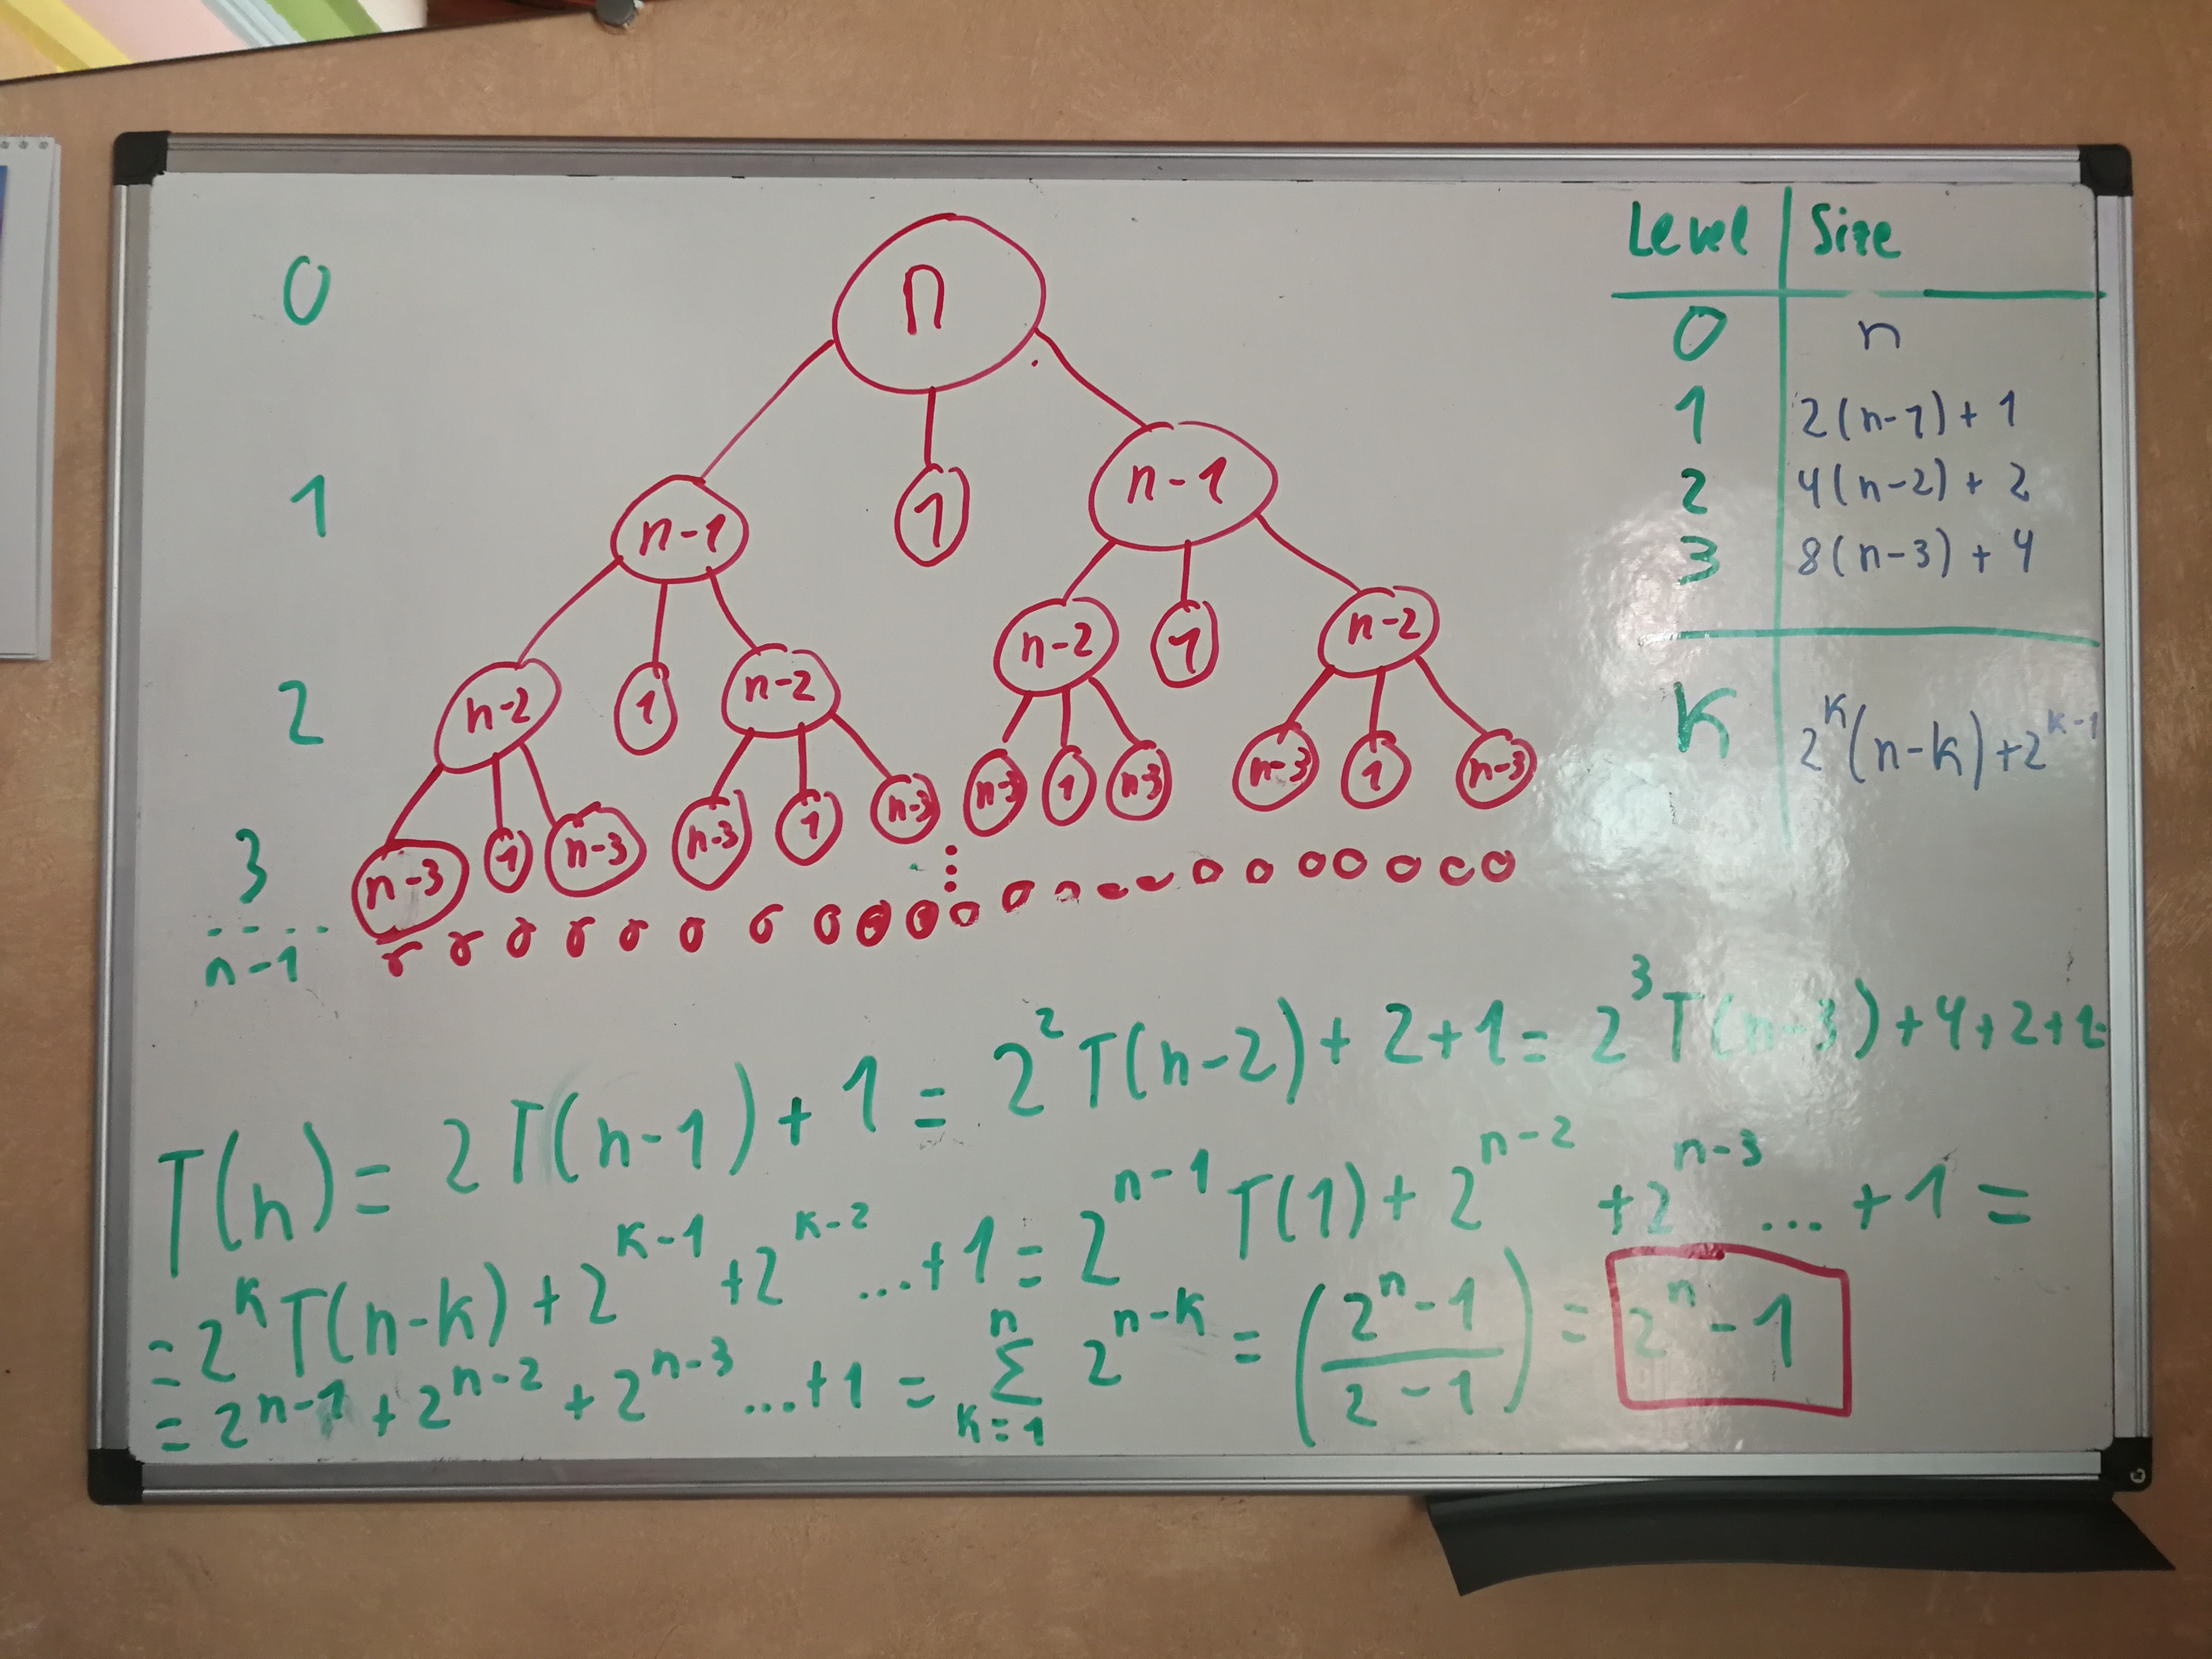 0
n
1
n-1 1 n-1
2
n-2 1 n-2 n-2 1 n-2
3
n-3 1 n-3 n-3 1 n-3 n-3 1 n-3 n-3 1 n-3
....
n-1
Level Size
0 n
1 2(n-1)+1
2 4(n-2)+2
3 8(n-3)+4
K 2^K(n-k)+2^{k-1}
T(n)= 2T(n-1)+1 = 2^2T(n-2)+2+1= 2^3T(n-3)+4+2+1=
=2^KT(n-k)+2^{K-1}+2^{K-2}...+1=2^{n-1}T(1)+2^{n-2}+2^{n-3}...+1=
=2^{n-1}+2^{n-2}+2^{n-3}...+1=∑_{K=1}^{n} 2^{n-K}=((2^n-1)/(2-1))=2^n-1